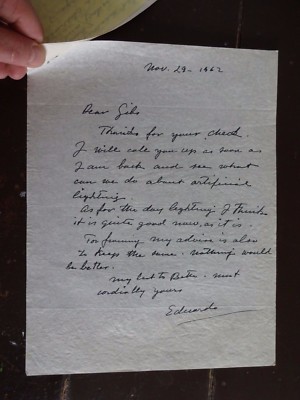 Nov. 29 - 1962
Dear Gibs
Thanks for your check.
I will call you up as soon as
I am back and see what
can we do about artificial
lighting.
As for the day lighting I think
it is quite good now, as it is.
For framing my advice is also
to keep the same. nothing would
be better.
my best to Bets. most
cordially yours
Eduardo